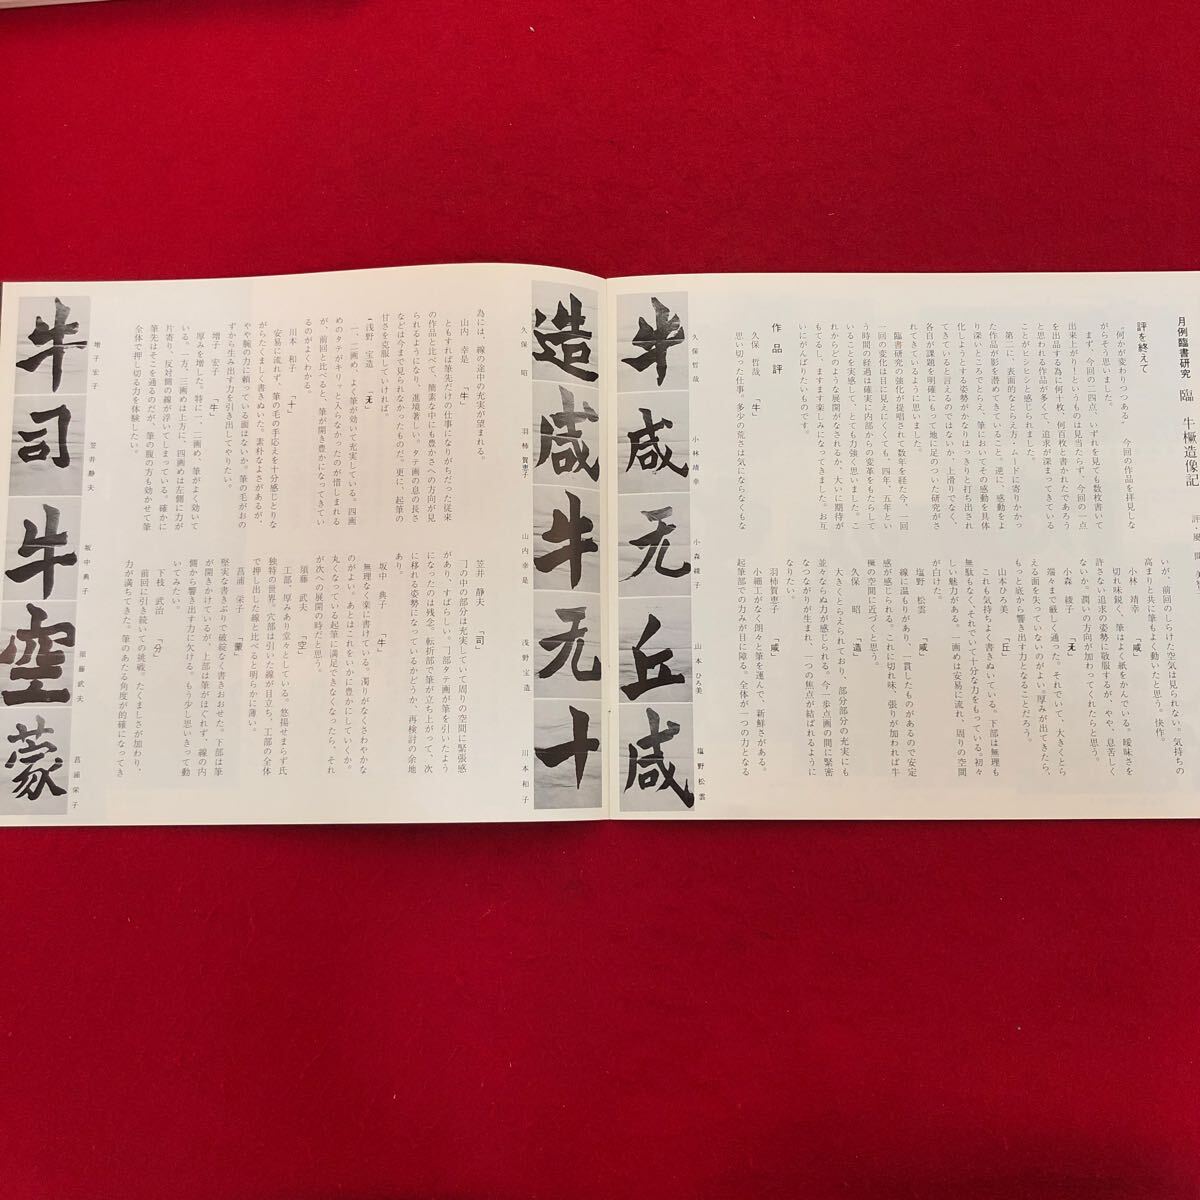 月例臨書研究 臨 牛橛造像記
評を終えて
“何かが変わりつつある” 今回の作品を拝見しな
がらそう思いました。
まず、今回の二四点、いずれを見ても数枚書いて
出来上がり！というものは見当たらず、今回の一点
を出品する為に何十枚、何百枚と書かれたであろう
と思われる作品が多くて、追求が深まってきている
ことがヒシヒシと感じられました。
第二に、表面的なとらえ方・ムードに寄りかかっ
た作品が影を潜めてきていること。逆に、感動をよ
り深いところでとらえ、筆においてその感動を具体
化しようとする姿勢がかなりはっきりと打ち出され
てきていると言えるのではないか。上滑りでなく、
各自が課題を明確にもって地に足のついた研究がさ
れてきているように思いました。
臨書研究の強化が提唱されて数年を経た今、一回
一回の変化は目に見えにくくても、四年、五年とい
う時間の経過は確実に内部からの変革をもたらして
いることを実感して、とても力強く思いました。こ
れからどのような展開がなされるか、大いに期待が
もてるし、ますます楽しみになってきました。お互
いにがんばりたいものです。
作品評
久保 哲哉 「牛」
思い切った仕事。多少の荒さは気にならなくもな
いが、前回のしらけた空気は見られない。気持ちの
高まりと共に筆もよく動いたと思う。快作。
小林 靖幸 「咸」
切れ味鋭く、筆はよく紙をかんでいる。曖昧さを
許さない追求の姿勢に敬服するが、やや、息苦しく
ないか。潤いの方向が加わってくれたらと思う。
小森 綾子 「无」
端々まで厳しく通った。それでいて、大きくとら
える面を失っていないのがよい。厚みが出てきたら、
もっと底から響き出す力となることだろう。
山本ひろ美 「丘」
これも気持ちよく書きぬいている。下部は無理も
無駄もなく、それでいて十分な力をもっている。初々
しい魅力がある。一画めは安易に流れ、周りの空間
が白けた。
塩野 松雲 「咸」
線に温もりがあり、一貫したものがあるので安定
感が感じられる。これに切れ味、張りが加われば牛
橛の空間に近づくと思う。
久保 昭 「造」
大きくとらえられており、部分部分の充実にも
並々ならぬ力が感じられる。今一歩点画の間に緊密
なつながりが生まれ、一つの焦点が結ばれるように
なりたい。
羽柿賀恵子 「咸」
小細工がなく朗々と筆を運んで、新鮮さがある。
起筆部での力みが目に障る。全体が一つの力となる
牛
咸
无
丘
咸
久保哲哉
小林靖幸
小森綾子
山本ひろ美
塩野松雲
造
咸
牛
无
十
久保昭
羽柿賀恵子
山内幸是
浅野宝造
川本和子
為には、線の途中の充実が望まれる。
山内 幸是 「牛」
ともすれば筆先だけの仕事になりがちだった従来
の作品と比べ、簡素な中にも豊かさへの方向が見
られるようになり、進境著しい。タテ画の息の長さ
などは今まで見られなかったものだ。更に、起筆の
甘さを克服していければ。
浅野 宝造 「无」
一、二画め、よく筆が効いて充実している。四画
めのタテがキリッと入らなかったのが惜しまれる
が、前回と比べると、筆が開き豊かになってきてい
るのがよくわかる。
川本 和子 「十」
安易に流れず、筆の毛の手応えを十分感じとりな
がらたくましく書きぬいた。素朴なよさがあるが、
やや腕の力に頼っている面はないか。筆の毛がおの
ずから生み出す力を引き出してやりたい。
増子 宏子 「牛」
厚みを増した。特に一、二画め、筆がよく効いて
いる。一方、三画めは上方に、四画めは左側に力が
片寄り、反対側の線が浮いてしまっている。確かに
筆先はそこを通るのだが、筆の腹の方も効かせて筆
全体で押し切る力を体験したい。
笠井 静夫 「司」
「口」の中の部分は充実していて周りの空間に緊張感
があり、すばらしい。部タテ画が筆を引いたよう
になったのは残念。転折部で筆が立ち上がって、次
に移れる姿勢になっているかどうか、再検討の余地
あり。
坂中 典子 「牛」
無理なく楽に書けている。濁りがなくさわやかな
のがよい。あとはこれをいかに豊かにしていくか。
丸くなっている起筆に満足できなくなったら、それ
が次への展開の時だと思う。
須藤 武夫 「空」
工部、厚みあり堂々としている。悠揚せまらず氏
独特の世界。穴部は引いた線が目立ち、工部の全体
で押し出した線と比べると明らかに薄い。
菖浦 栄子 「蒙」
堅実な書きぶりで破綻なく書きおおせた。下部は筆
が開きかけているが、上部は筆がほぐれず、線の内
側から響き出す力に欠ける。もう少し思いきって動
いてみたい。
下枝 武治 「分」
前回に引き続いての挑戦。たくましさが加わり、
力が満ちてきた。筆のあたる角度が的確になってき
牛
司
牛
空
蒙
増子宏子
笠井静夫
坂中典子
須藤武夫
菖浦栄子